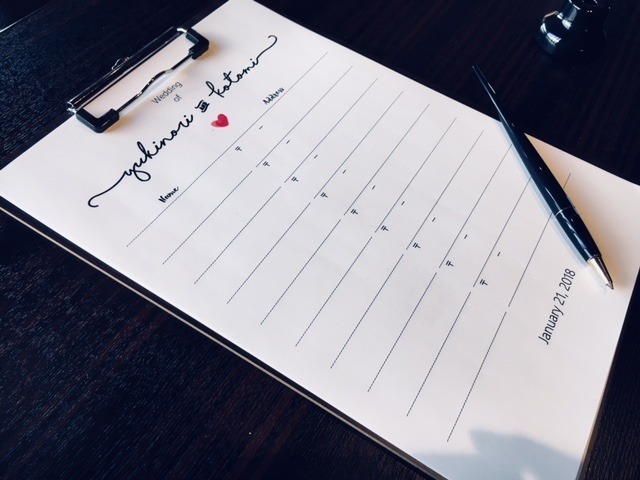 Wedding
of
yukinori & kotomi
Name Address
〒 -
〒 -
〒 -
〒 -
〒 -
〒 -
〒 -
〒 -
〒 -
January 21, 2018